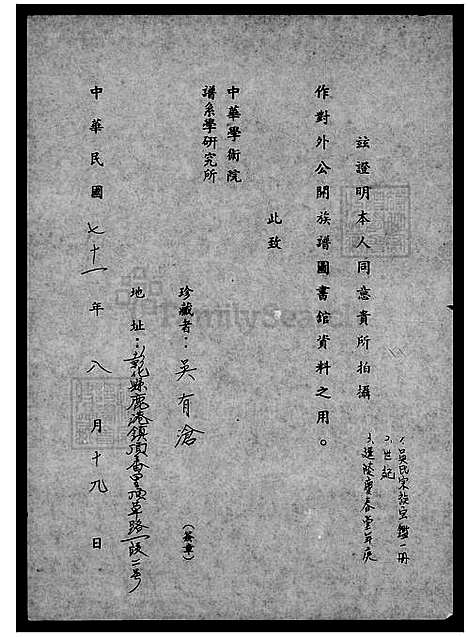 茲證明本人同意貴所拍攝
1、吳氏宗族宝鑑一冊
2、世紀
3、延陵慶春堂年庚
作對外公開族譜圖書館資料之用。
此致
中華學術院
譜系學研究所
珍藏者：吳有滄
（簽章）
地址：彰化縣鹿港鎮頂番里頂草路一段二号
中華民國七十一年八月十九日
FamilySearch